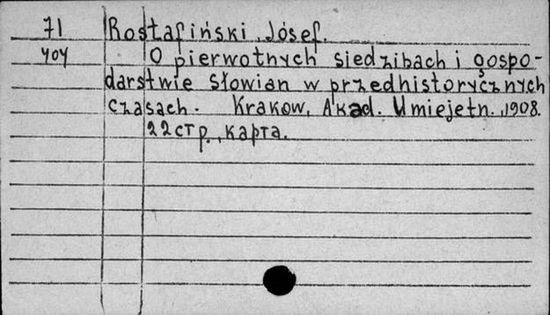 71 Rostafiński, Jósef.
404 O pierwotnych siedzibach i gospo-
darstwie słowian w przedhistorycznych
czasach. Krakow, Akad. Umiejetn., 1908.
22 стр., карта.